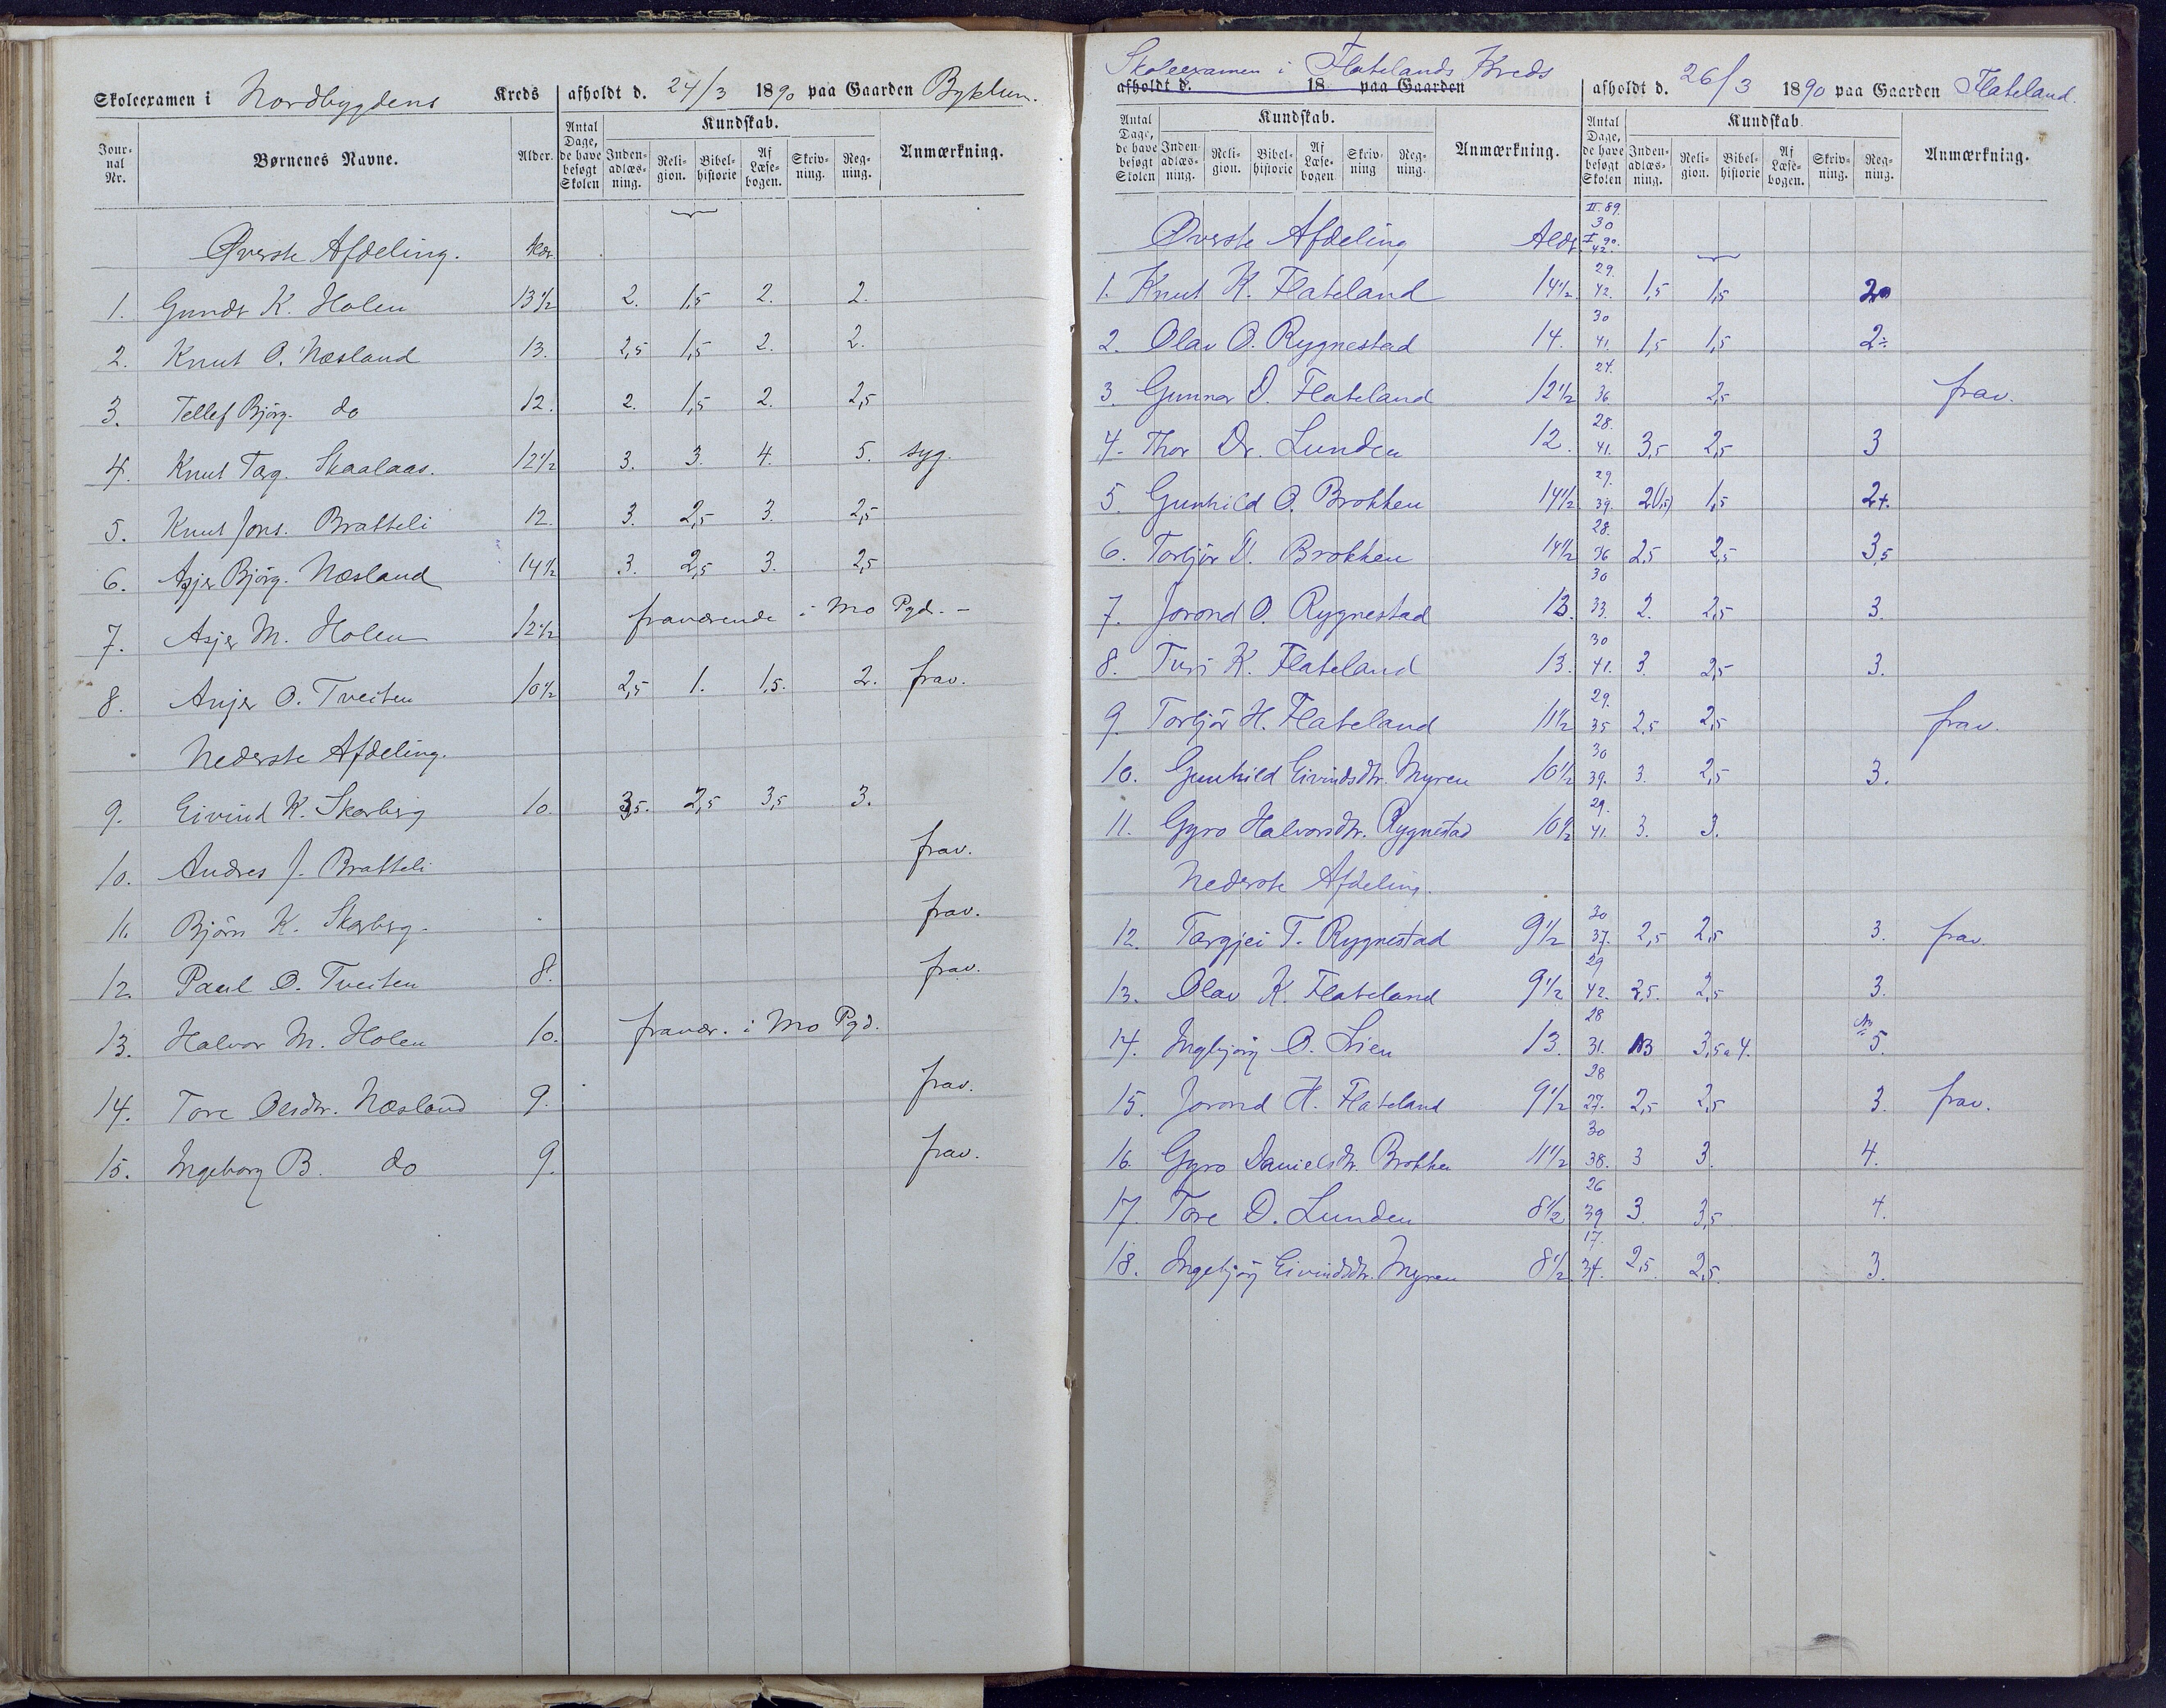 Skoleexamen i Nordbygdens Kreds afholdt d. 24/3 1890 paa Gaarden Byklum.
Jour-nal Nr. Børnenes Navne. Alder. Antal Dage, de have besøgt Skolen Kundskab. Inden-adlæs-ning. Reli-gion. Bibel-historie Af Læse-bogen. Skriv-ning. Reg-ning. Anmærkning.
Øverste Afdeling. Alder.
1. Gundr K. Holen 13½ 2. 1,5 2. 2.
2. Knut O. Næsland 13. 2,5 1,5 2. 2.
3. Tellef Bjørg. do 12. 2. 1,5 2. 2,5
4. Knut Targ. Skaalaas. 12½ 3. 3. 4. 5. syg.
5. Knut Jons. Bratteli 12. 3. 2,5 3. 2,5
6. Asjer Bjørg. Næsland 14½ 3. 2,5 3. 2,5
7. Asjer M. Holen 12½ fraværende i Mo Pgd. -
8. Anjer O. Tveiten 10½ 2,5 1. 1,5. 2. frav.
Nederste Afdeling.
9. Eivind K. Skarberg 10. 3,5. 2,5 3,5 3.
10. Andres J. Bratteli frav.
11. Bjørn K. Skarberg. frav.
12. Paul O. Tveiten 8. frav.
13. Halvor M. Holen 10. fravær. i Mo Pgd.
14. Tore Olsdtr. Næsland 9. frav.
15. Ingeborg B. do 9. frav.
Skoleexamen i Flatelands Kreds
afholdt d. 18 paa Gaarden afholdt d. 26/3 1890 paa Gaarden Flateland.
Antal Dage, de have besøgt Skolen Kundskab. Inden-adlæs-ning. Reli-gion. Bibel-historie Af Læse-bogen Skriv-ning Reg-ning. Anmærkning. Antal Dage, de have besøgt Skolen Kundskab. Inden-adlæs-ning. Reli-gion. Bibel-historie Af Læse-bogen. Skriv-ning. Reg-ning. Anmærkning.
Øverste Afdeling Alder II. 89. 30 I 90. 42.
1. Knut K. Flateland 14½ 29. 42. 1,5 1,5 2
2. Olav O. Rygnestad 14. 30 41. 1,5 1,5 2÷
3. Gunnar D. Flateland 12½ 24. 36 2,5 frav.
4. Thor Dr. Lunden 12. 28. 41. 3,5 2,5 3
5. Gunhild O. Brokken 14½ 29. 39. 2(1,5) 1,5 2+.
6. Torbjør D. Brokken 14½ 28. 36 2,5 2,5 3,5
7. Jorond O. Rygnestad 13. 30 33. 2. 2,5 3.
8. Turi K. Flateland 13. 30 41. 3. 2,5 3.
9. Torbjør H. Flateland 11½ 29. 35 2,5 2,5 frav.
10. Gunhild Eivindsdtr. Myren 10½ 30 39. 3. 2,5 3.
11. Gyro Halvorsdtr. Rygnestad 10½ 29. 41. 3. 3.
Nederste Afdeling.
12. Targjei T. Rygnestad 9½ 30 37. 2,5 2,5 3. frav.
13. Olav K. Flateland 9½ 29 42. 2,5. 2,5 3.
14. Ingbjørg O. Lien 13. 28 31. 3 3,5 a 4. 5.
15. Jorond H. Flateland 9½ 28 27. 2,5 2,5 3. frav.
16. Gyro Danielsdtr. Brokken 11½ 30 38. 3 3. 4.
17. Tore D. Lunden 8½ 26 39 3. 3,5 4.
18. Ingebjørg Eivindsdtr. Myren 8½ 17. 34. 2,5. 2,5. 3.